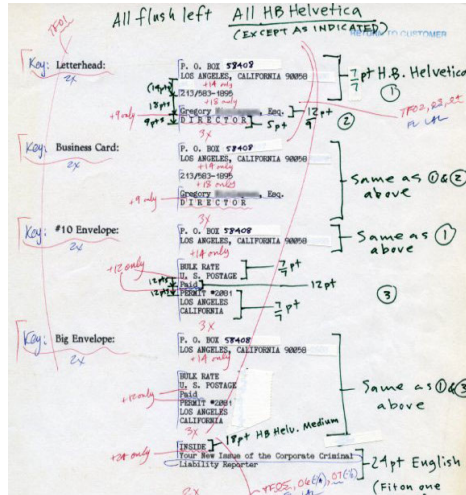 TF01
All flush left All HB Helvetica
(EXCEPT AS INDICATED)
RETURN TO CUSTOMER
Key: Letterhead:
2x
P. O. BOX 58408
LOS ANGELES, CALIFORNIA 90058
+14 only
213/583-1895
+18 only
Gregory Esq.
DIRECTOR
3x
(14pts
18pts
+9 only
9pts
7/7 pt H.B. Helvetica
①
12pt
9
②
5pt
TF02, 03, 04
Key: Business Card:
2x
P. O. BOX 58408
LOS ANGELES, CALIFORNIA 90058
+14 only
213/583-1895
+18 only
Gregory Esq.
DIRECTOR
+9 only
3x
Same as ① & ②
above
Key: #10 Envelope:
2x
P. O. BOX 58408
LOS ANGELES, CALIFORNIA 90058
+14 only
Same as ①
above
+12 only
BULK RATE
U. S. POSTAGE
Paid
PERMIT #2081
LOS ANGELES
CALIFORNIA
3x
12pts
12pts
7/7 pt
12pt
7/7 pt
③
Key: Big Envelope:
2x
P. O. BOX 58408
LOS ANGELES, CALIFORNIA 90058
+14 only
BULK RATE
U. S. POSTAGE
Paid
PERMIT #2081
LOS ANGELES
CALIFORNIA
+12 only
3x
Same as ① & ③
above
INSIDE
18pt HB Helv. Medium
Your New Issue of the Corporate Criminal
Liability Reporter
+24 only
24pt English
(Fit on one
2x
TF05, 06
07